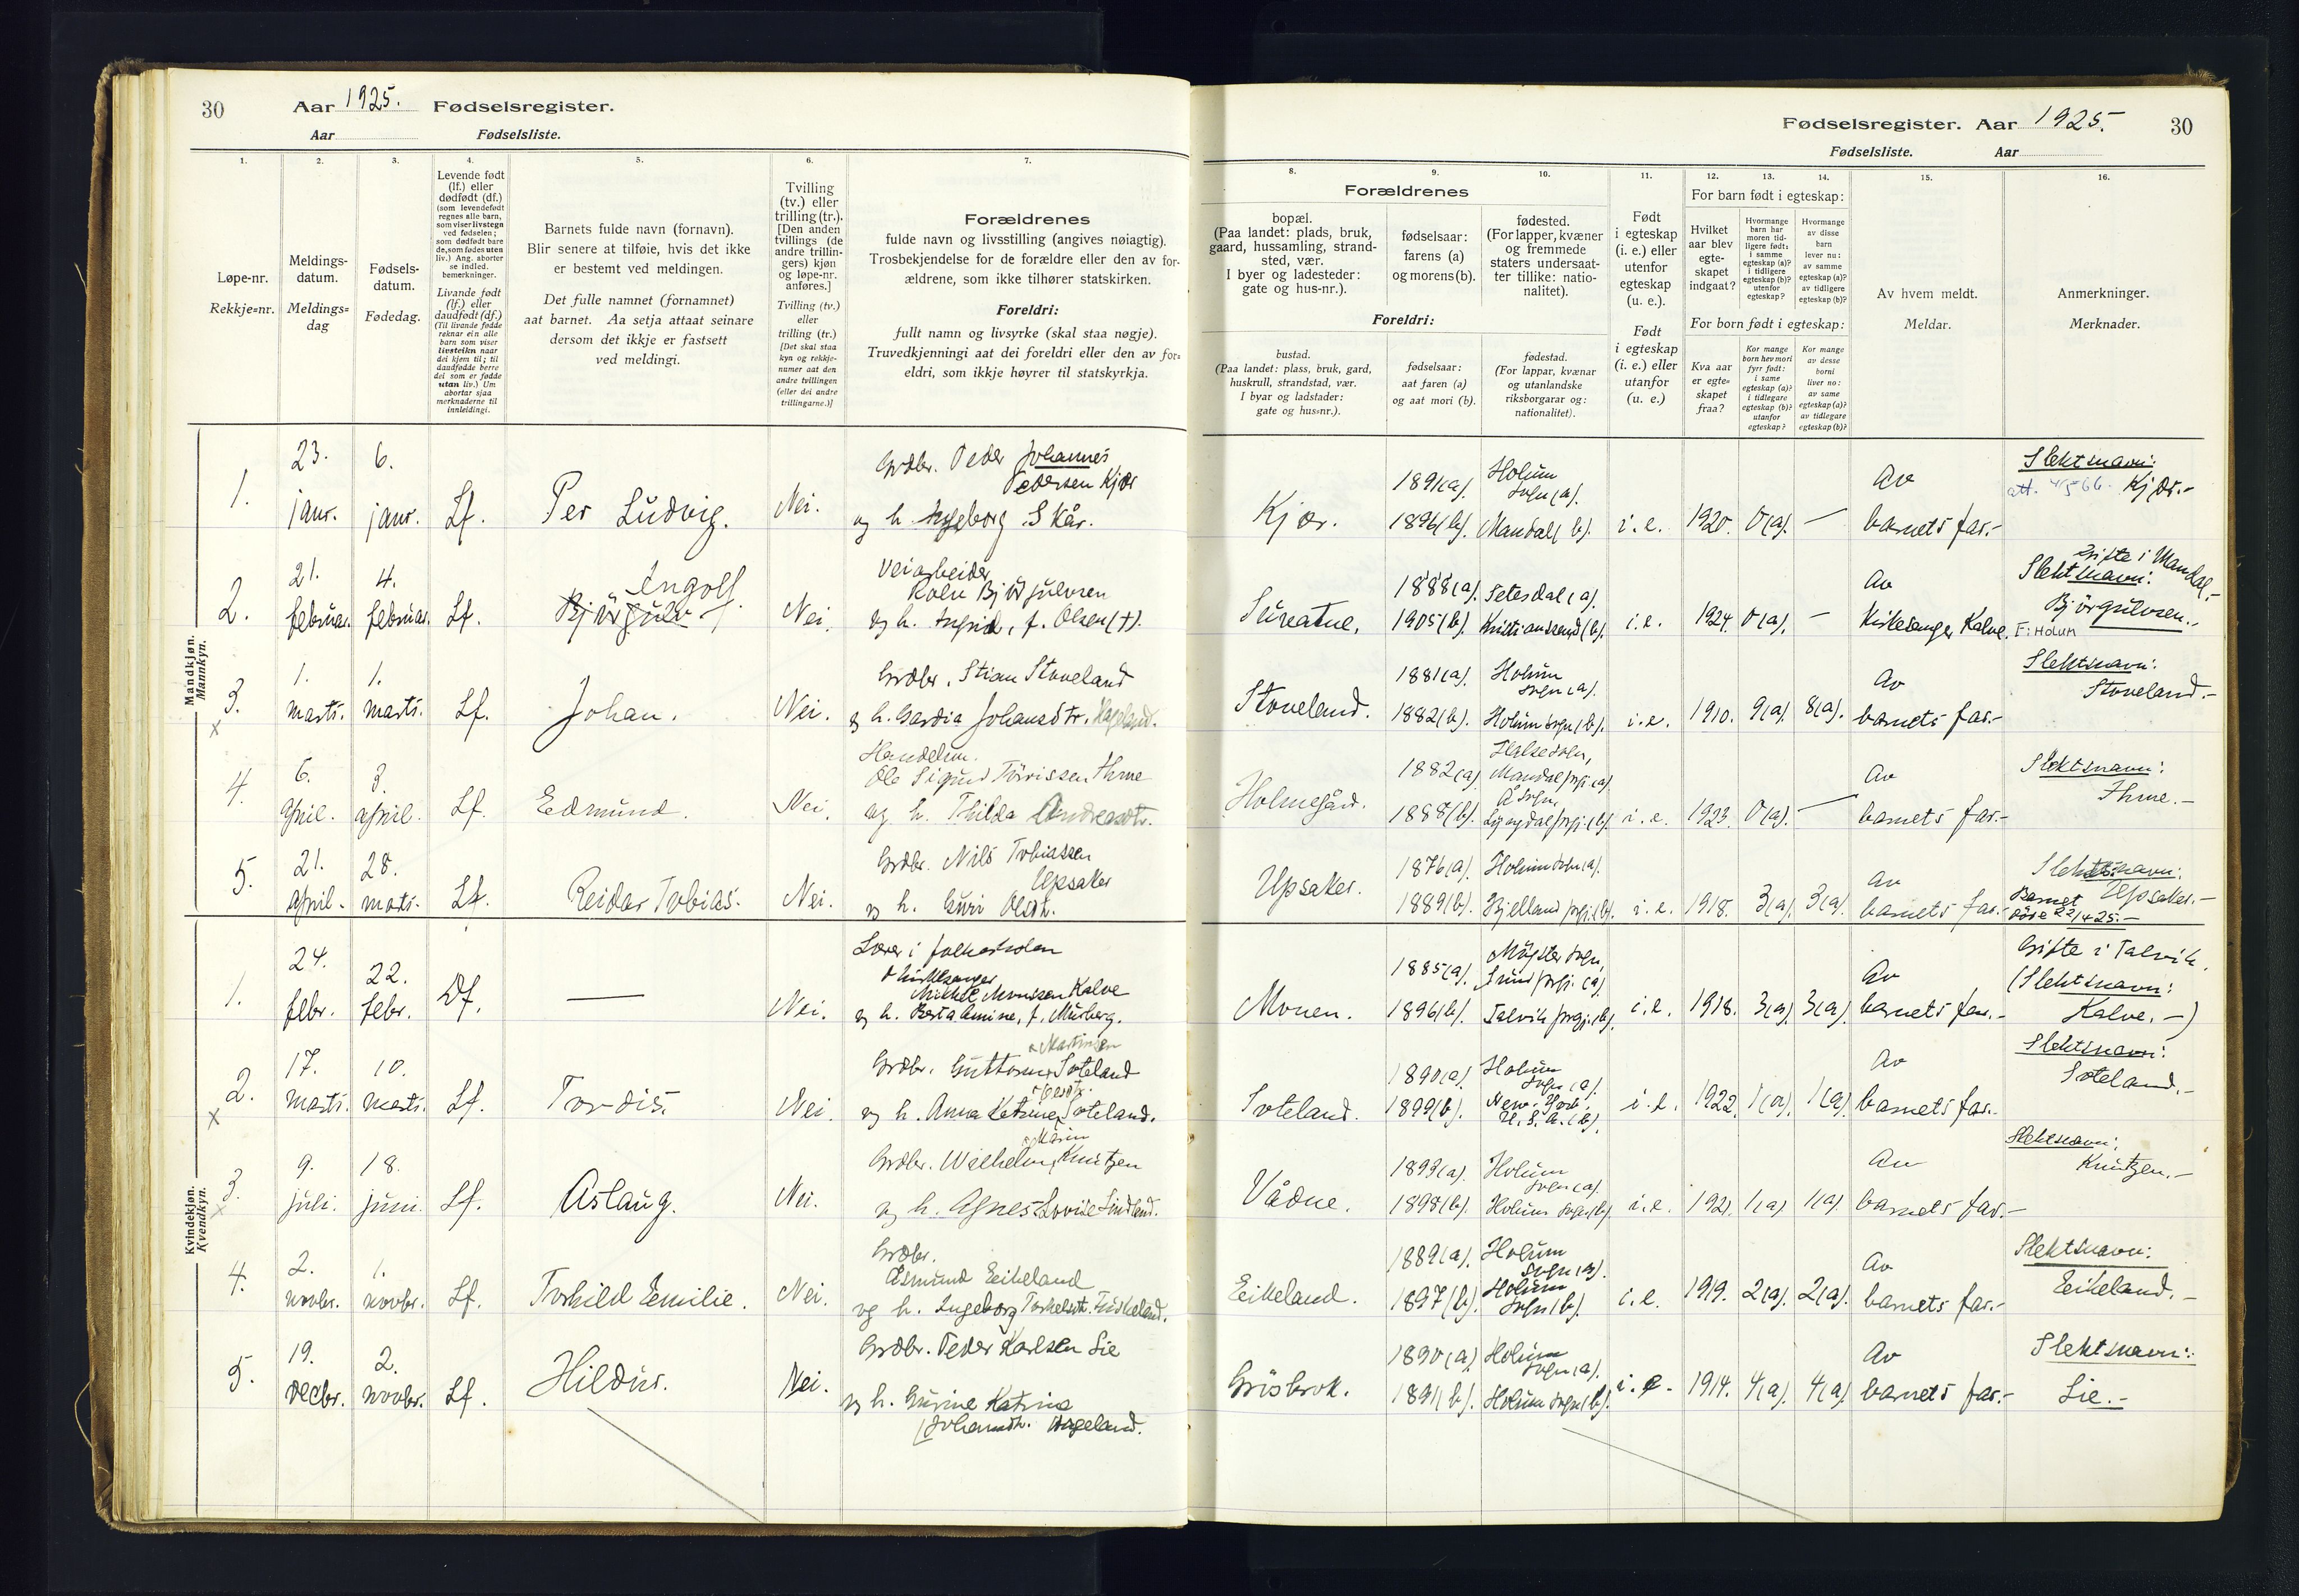 30
Aar 1925. Fødselsregister.
Aar Fødselsliste.
1.
2.
3.
4.
5.
6.
7.
Løpe-nr.
Rekkje=nr.
Meldings-
datum.
Meldings=
dag
Fødsels-
datum.
Fødedag.
Levende født
(lf.) eller
dødfødt (df.)
(som levendefødt
regnes alle barn,
som viser livstegn
ved fødselen;
som dødfødt bare
de, som fødes uten
liv.) Ang. aborter
se indled.
bemerkninger.
Livande født
(lf.) eller
daudfødt (df.)
(Til livande fødde
reknar ein alle
barn som viser
livsteikn naar
dei kjem til; til
daudfødde berre
dei som er fødde
utan liv.) Um
abortar sjaa
merknaderne til
innleidingi.
Barnets fulde navn (fornavn).
Blir senere at tilføie, hvis det ikke
er bestemt ved meldingen.
Det fulle namnet (fornamnet)
aat barnet. Aa setja attaat seinare
dersom det ikkje er fastsett
ved meldingi.
Tvilling
(tv.) eller
trilling (tr.).
[Den anden
tvillings (de
andre trillin-
gers) kjøn
og løpe-nr.
anføres.]
Tvilling (tv.)
eller
trilling (tr.)
[Det skal staa
kyn og rekkje-
numer aat den
andre tvillingen
(eller dei andre
trillingarne.)]
Forældrenes
fulde navn og livsstilling (angives nøiagtig).
Trosbekjendelse for de forældre eller den av for-
ældrene, som ikke tilhører statskirken.
Foreldri:
fullt namn og livsyrke (skal staa nøgje).
Truvedkjenningi aat dei foreldri eller den av for=
eldri, som ikkje høyrer til statskyrkja.
Mandkjøn.
Mannkyn.
1.
23.
janr.
6.
janr.
Lf.
Per Ludvig.
Nei.
Grdbr. Peder Johannes
Pedersen Kjær
og h. Ingeborg Skår.
2.
21.
februar.
4.
februar.
Lf.
Ingolf
Bjørgulv
Nei.
Veiarbeider
Bjørgulvsen
og h. Ingrid, f. Olsen (†).
3.
x
1.
marts.
1.
marts.
Lf.
Johan.
Nei.
Grdbr. Stian Stoveland
og h. Gardia Johansdtr. Hageland.
4.
6.
april.
3.
april.
Lf.
Edmund.
Nei.
Handelsm.
Ole Sigurd Tørrissen Ihme
og h. Thilda Andreasdtr.
5.
21.
april.
28.
marts.
Lf.
Reidar Tobias.
Nei.
Grdbr. Nils Tobiassen
Upsaker
og h. Guri Olsdt.
Kvindekjøn.
Kvendkyn.
1.
24.
febr.
22.
febr.
Df.
Nei.
Lærer i folkeskolen
& kirkesanger
Mikkel Monssen Kalve
og h. Berta Amine, f. Murberg.
2.
x
17.
marts.
10.
marts.
Lf.
Tordis.
Nei.
Martinsen
Grdbr. Guttorm Soteland
og h. Anna Katrine Soteland.
3.
x
9.
juli.
18.
juni.
Lf.
Aslaug.
Nei.
Marin
Grdbr. Wilhelm Knutzen
og h. Agnes Lovise Lindland.
4.
2.
novbr.
1.
novbr.
Lf.
Torhild Emilie.
Nei.
Grdbr.
Åsmund Eikeland
og h. Ingeborg Torkelsdt. Fuskeland.
5.
19.
decbr.
2.
novbr.
Lf.
Hildur.
Nei.
Grdbr. Peder Karlsen Lie
og h. Gurine Katrine
Johansdtr. Hageland.
Fødselsregister. Aar 1925. 30
Fødselsliste. Aar
8.
9.
10.
11.
12.
13.
14.
15.
16.
Forældrenes
bopæl.
(Paa landet: plads, bruk,
gaard, hussamling, strand-
sted, vær.
I byer og ladesteder:
gate og hus-nr.).
fødselsaar:
farens (a)
og morens (b).
fødested.
(For lapper, kvæner
og fremmede
staters undersaat-
ter tillike: natio-
nalitet).
Foreldri:
bustad.
(Paa landet: plass, bruk, gard,
huskrull, strandstad, vær.
I byar og ladstader:
gate og hus=nr.).
fødselsaar:
aat faren (a)
og aat mori (b).
fødestad.
(For lappar, kvænar
og utanlandske
riksborgarar og:
nationalitet).
Født
i egteskap
(i. e.) eller
utenfor
egteskap
(u. e.).
Født
i egteskap
(i. e.) eller
utanfor
(u. e.)
For barn født i egteskap:
Hvilket
aar blev
egte-
skapet
indgaat?
Hvormange
barn har
moren tid-
ligere født:
i samme
egteskap (a)?
i tidligere
egteskap (b)?
utenfor
egteskap?
Hvormange
av disse
barn
lever nu:
av samme
egteskap (a)?
av tidligere
egteskap (b)?
For born født i egteskap:
Kva aar
er egte=
skapet
fraa?
Kor mange
born hev mori
fyrr født:
i same
egteskap (a)?
i tidlegare
egteskap (b)?
utanfor
egteskap?
Kor mange
av desse
borni
liver no:
av same
egteskap (a)?
av tidlegare
egteskap (b)?
Av hvem meldt.
Meldar.
Anmerkninger.
Merknader.
Kjær.
1891(a).
1896(b).
Holum
sogn (a).
Mandal (b).
i. e.
1920.
0(a).
—
Av
barnets far.-
Slektsnavn:
Kjær.-
1888(a).
1905(b).
Setesdal (a).
Kristianssand (b).
i. e.
1924.
0(a).
—
Av
Kirkesanger Kalve.
Gifte i Mandal.-
Slektsnavn:
Bjørgulvsen.-
F: Holum
Stoveland.
1881(a).
1882(b).
Holum
sogn (a).
Holum sogn (b).
i. e.
1910.
9(a).
8(a).
Av
barnets far.-
Slektsnavn:
Stoveland.-
Holmegård.
1882(a).
1888(b).
Halse sogn,
Mandal prgj. (a).
Å sogn,
Lyngdal prgj. (b).
i. e.
1923.
0(a).
—
Av
barnets far.-
Slektsnavn:
Ihme.-
Upsaker.
1876(a).
1889(b).
Holum sogn (a).
Bjelland prgj. (b).
i. e.
1918.
3(a).
3(a).
Av
barnets far.-
Slektsnavn:
Upsaker.-
Barnet
døde 22/4 25.-
Monen.
1885(a).
1896(b).
Møgster sogn,
Sund prgj. (a).
Talvik prgj. (b).
i. e.
1918.
3(a).
3(a).
Av
barnets far.-
Gifte i Talvik.
(Slektsnavn:
Kalve.-)
Soteland.
1890(a).
1899(b).
Holum
sogn (a).
New-York,
U. S. A. (b).
i. e.
1922.
1(a).
1(a).
Av
barnets far.-
Slektsnavn:
Soteland.-
Vådne.
1893(a).
1898(b).
Holum
sogn (a).
Holum sogn (b).
i. e.
1921.
1(a).
1(a).
Av
barnets far.-
Slektsnavn:
Knutzen.-
Eikeland.
1889(a).
1897(b).
Holum
sogn (a).
Holum
sogn (b).
i. e.
1919.
2(a).
2(a).
Av
barnets far.-
Slektsnavn:
Eikeland.-
Grisbrok.
1890(a).
1891(b).
Holum
sogn (a).
Holum sogn (b).
i. e.
1914.
4(a).
4(a).
Av
barnets far.-
Slektsnavn:
Lie.-